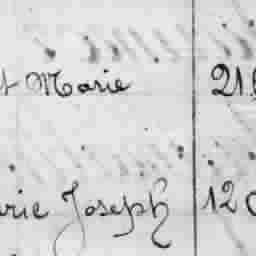 t Marie 21
rie Joseph 12